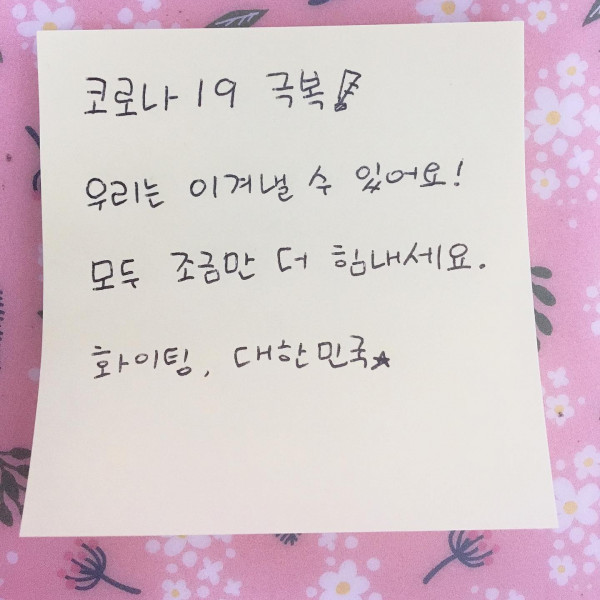 코로나 19 극복!
우리는 이겨낼 수 있어요!
모두 조금만 더 힘내세요.
화이팅, 대한민국★